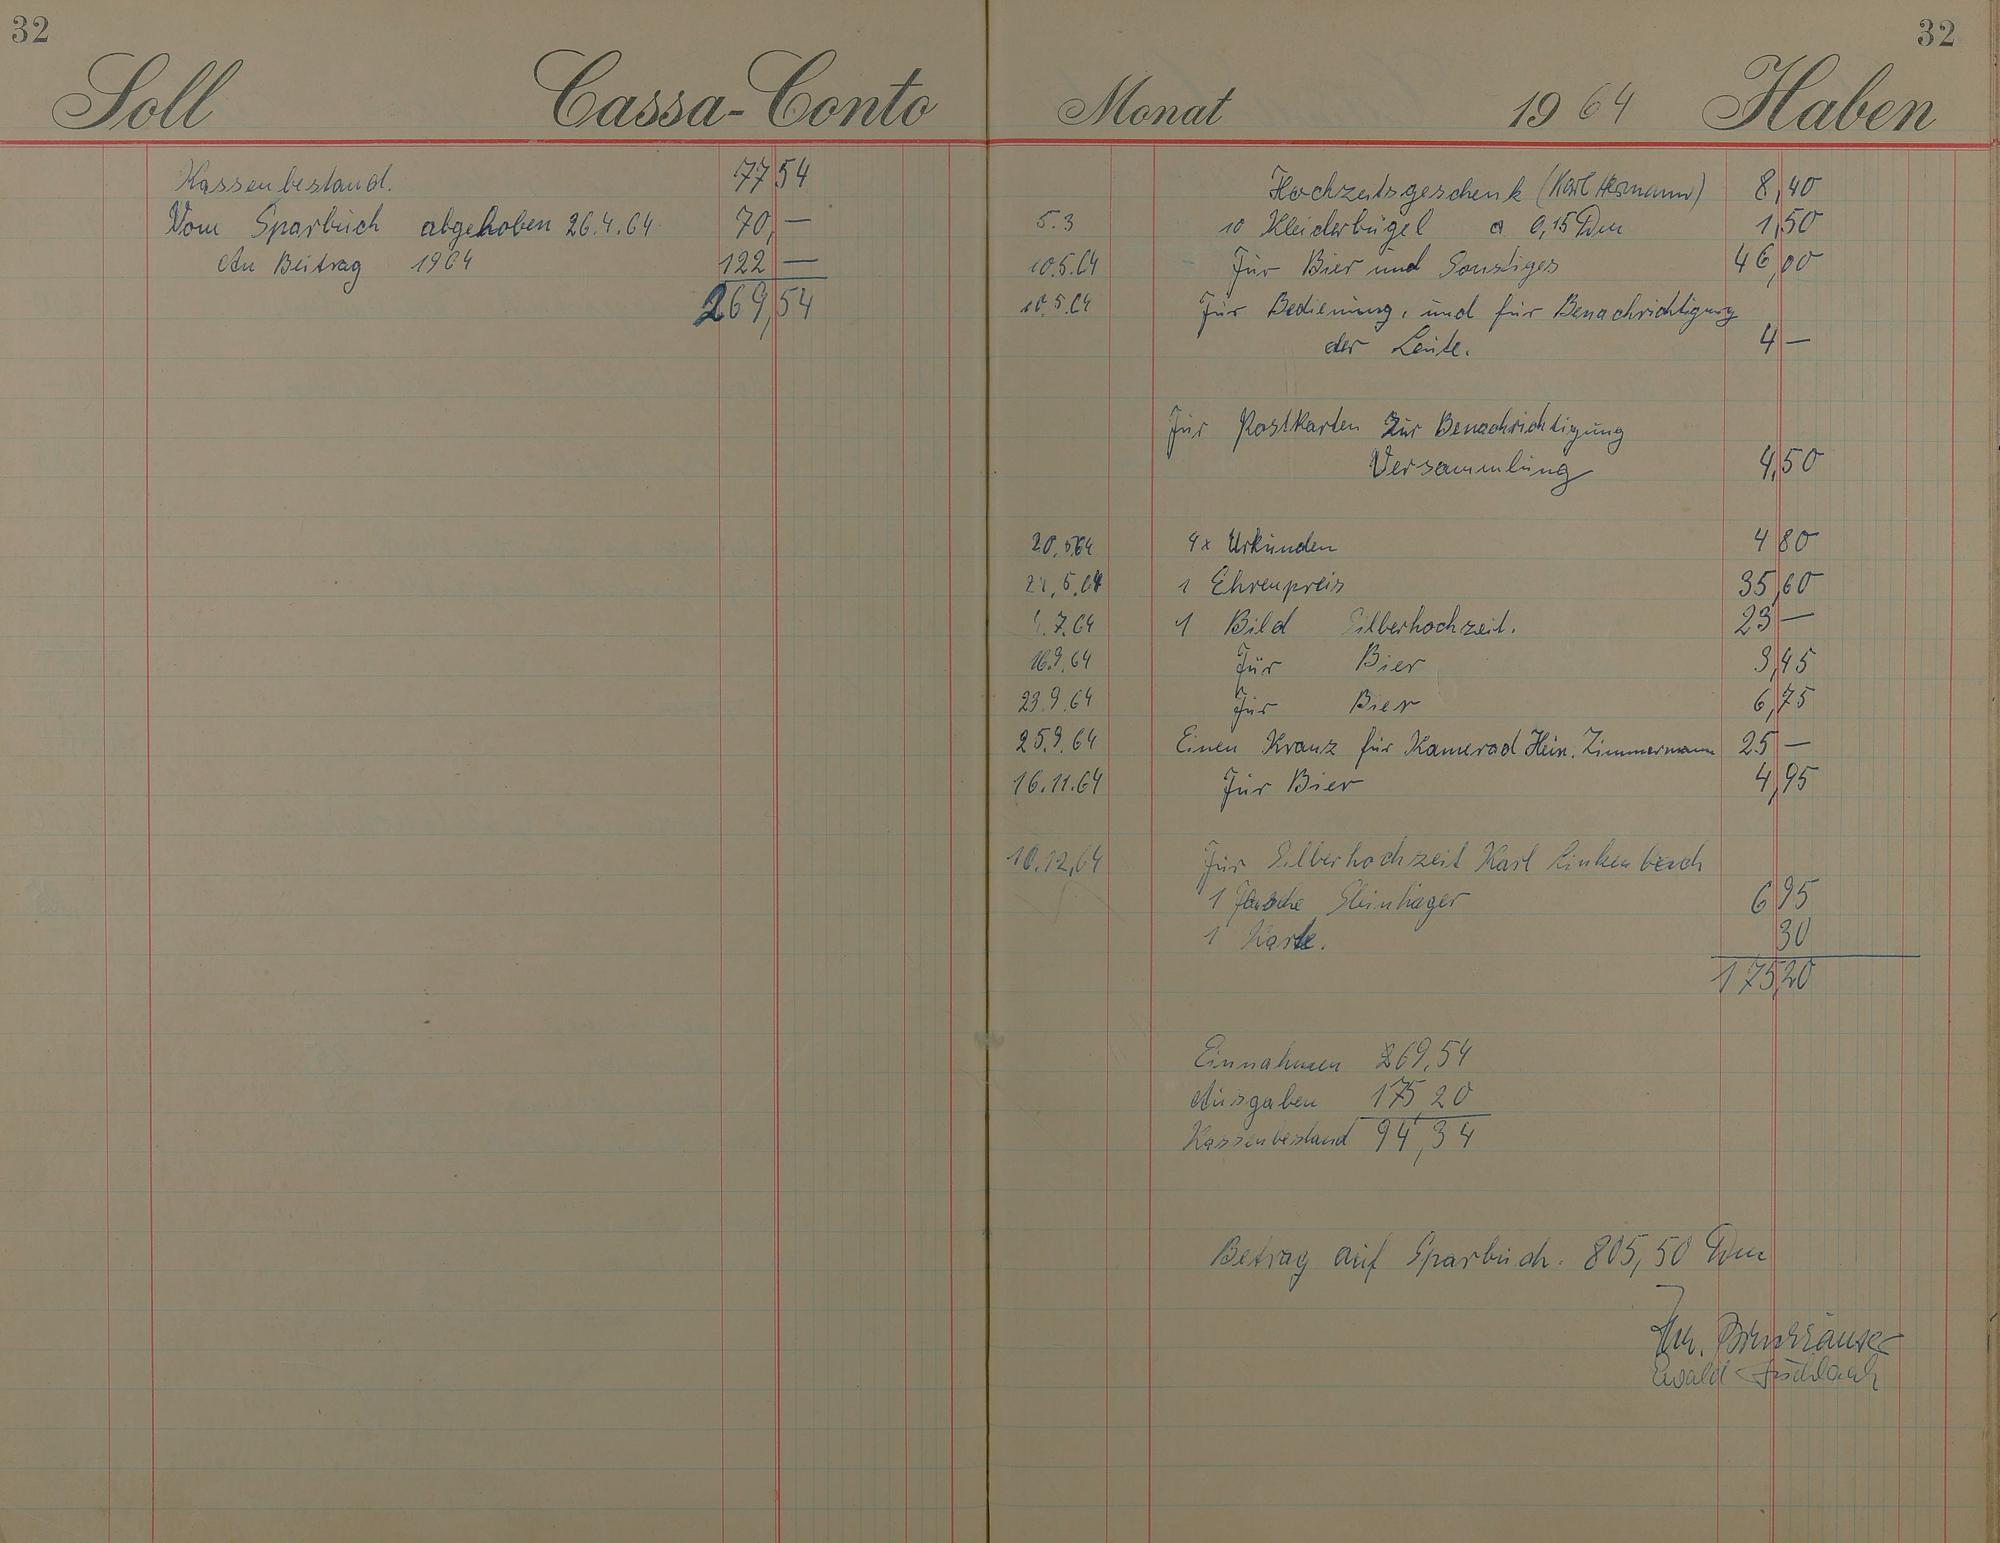 32
32
Soll Cassa-Conto
Monat 1964 Haben
Kassenbestand. 77 54
Vom Sparbuch abgehoben 26.4.64 70,—
An Beitrag 1964 122 —
269,54
Hochzeitsgeschenk (Karl Hermann) 8,40
5.3 10 Kleiderbügel a 0,15 Dm 1,50
10.5.64 Für Bier und Sonstiges 46,00
10.5.64 Für Bedienung, und für Benachrichtigung
der Leute. 4 —
Für Postkarten Zur Benachrichtigung
Versammlung 4,50
20.5.64 4x Urkunden 4 80
21.5.64 1 Ehrenpreis 35,60
.7.64 1 Bild Silberhochzeit. 23 —
16.9.64 Für Bier 3,45
23.9.64 Für Bier 6,75
25.9.64 Einen Kranz für Kamerad Hein. Zimmermann 25 —
16.11.64 Für Bier 4,95
10.12.64 Für Silberhochzeit Karl Linkenbach
1 Flasche Steinhäger 6 95
1 Karte. 30
175,20
Einnahmen 269,54
Ausgaben 175,20
Kassenbestand 94,34
Betrag auf Sparbuch. 805,50 Dm
Ewald